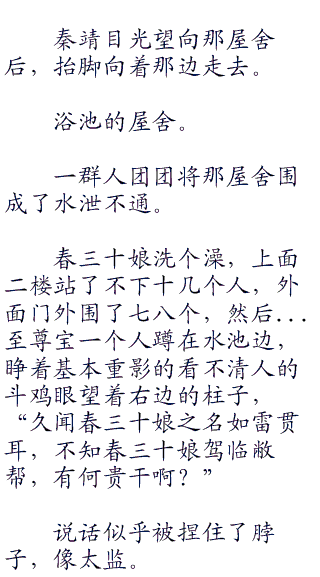 秦靖目光望向那屋舍
后，抬脚向着那边走去。
浴池的屋舍。
一群人团团将那屋舍围
成了水泄不通。
春三十娘洗个澡，上面
二楼站了不下十几个人，外
面门外围了七八个，然后...
至尊宝一个人蹲在水池边，
睁着基本重影的看不清人的
斗鸡眼望着右边的柱子，
“久闻春三十娘之名如雷贯
耳，不知春三十娘驾临敝
帮，有何贵干啊？”
说话似乎被捏住了脖
子，像太监。